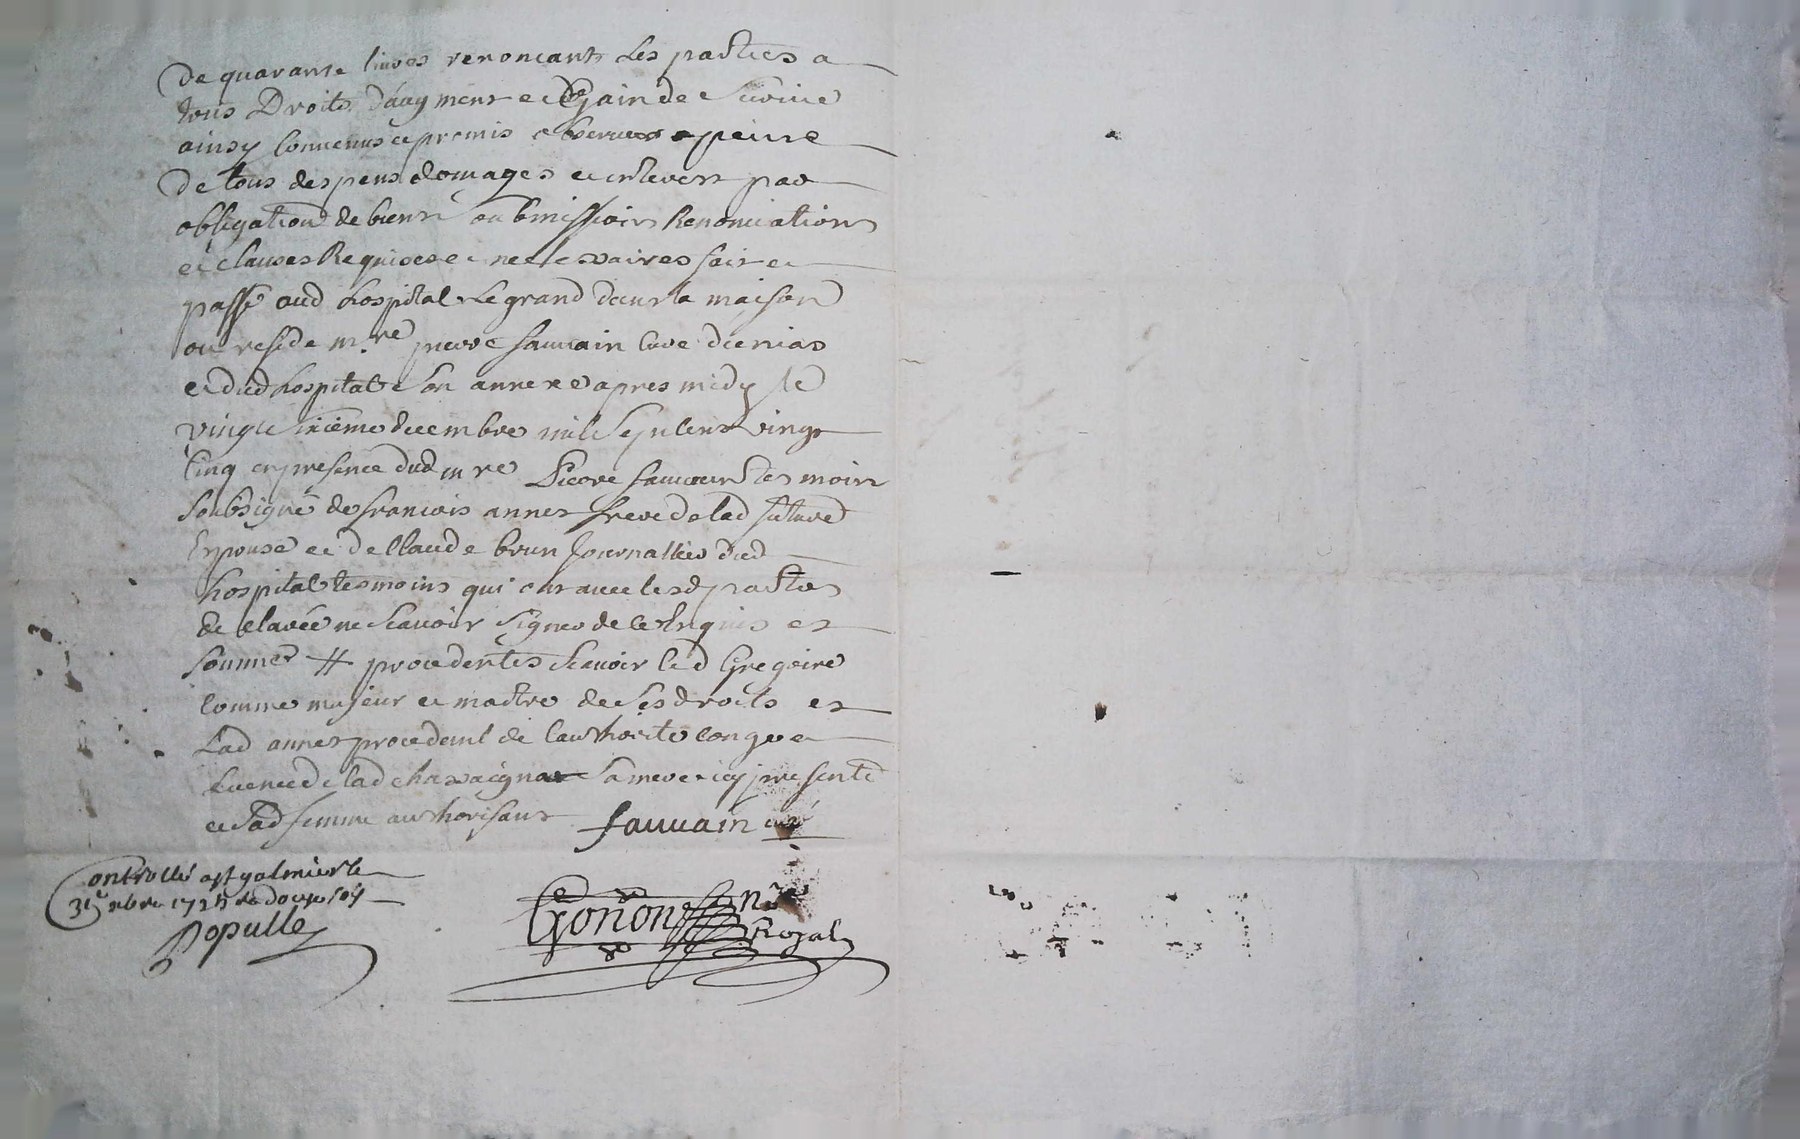 de quarante livres renoncant les parties a
tous Droits daugment et Gain de Survie
ainsy convenus et promis observer a peine
de tous despens domages et interest par
obligation de biens soubmissions Renonciations
et clauses Requises et necessaires fait et
passé aud hospital Le grand dans la maison
ou reside m.re pierre sauuain curé
et dud hospital son annexe apres midy le
vingt sixieme decembre mil sept cent vingt
cinq en presence dud m re Pierre sauuain tesmoin
soubsigné de francois annet frere de lad future
Epouse et de Claude brun Journallier dud
hospital tesmoins qui ont avec lesd parties
declarée ne scauoir signer de ce Enquis et
sommes # procedentes scauoir led Gregoire
comme majeur et maitre de ses droits et
Lad annet procedant de lauthorité conge et
licence de lad chassaigna sa mere icy presente
et lad femme authorisant sauuain curé
Controllé a st galmier le
31e xbre 1725 Recu douze sols
Populle
Gonon nre
Royal